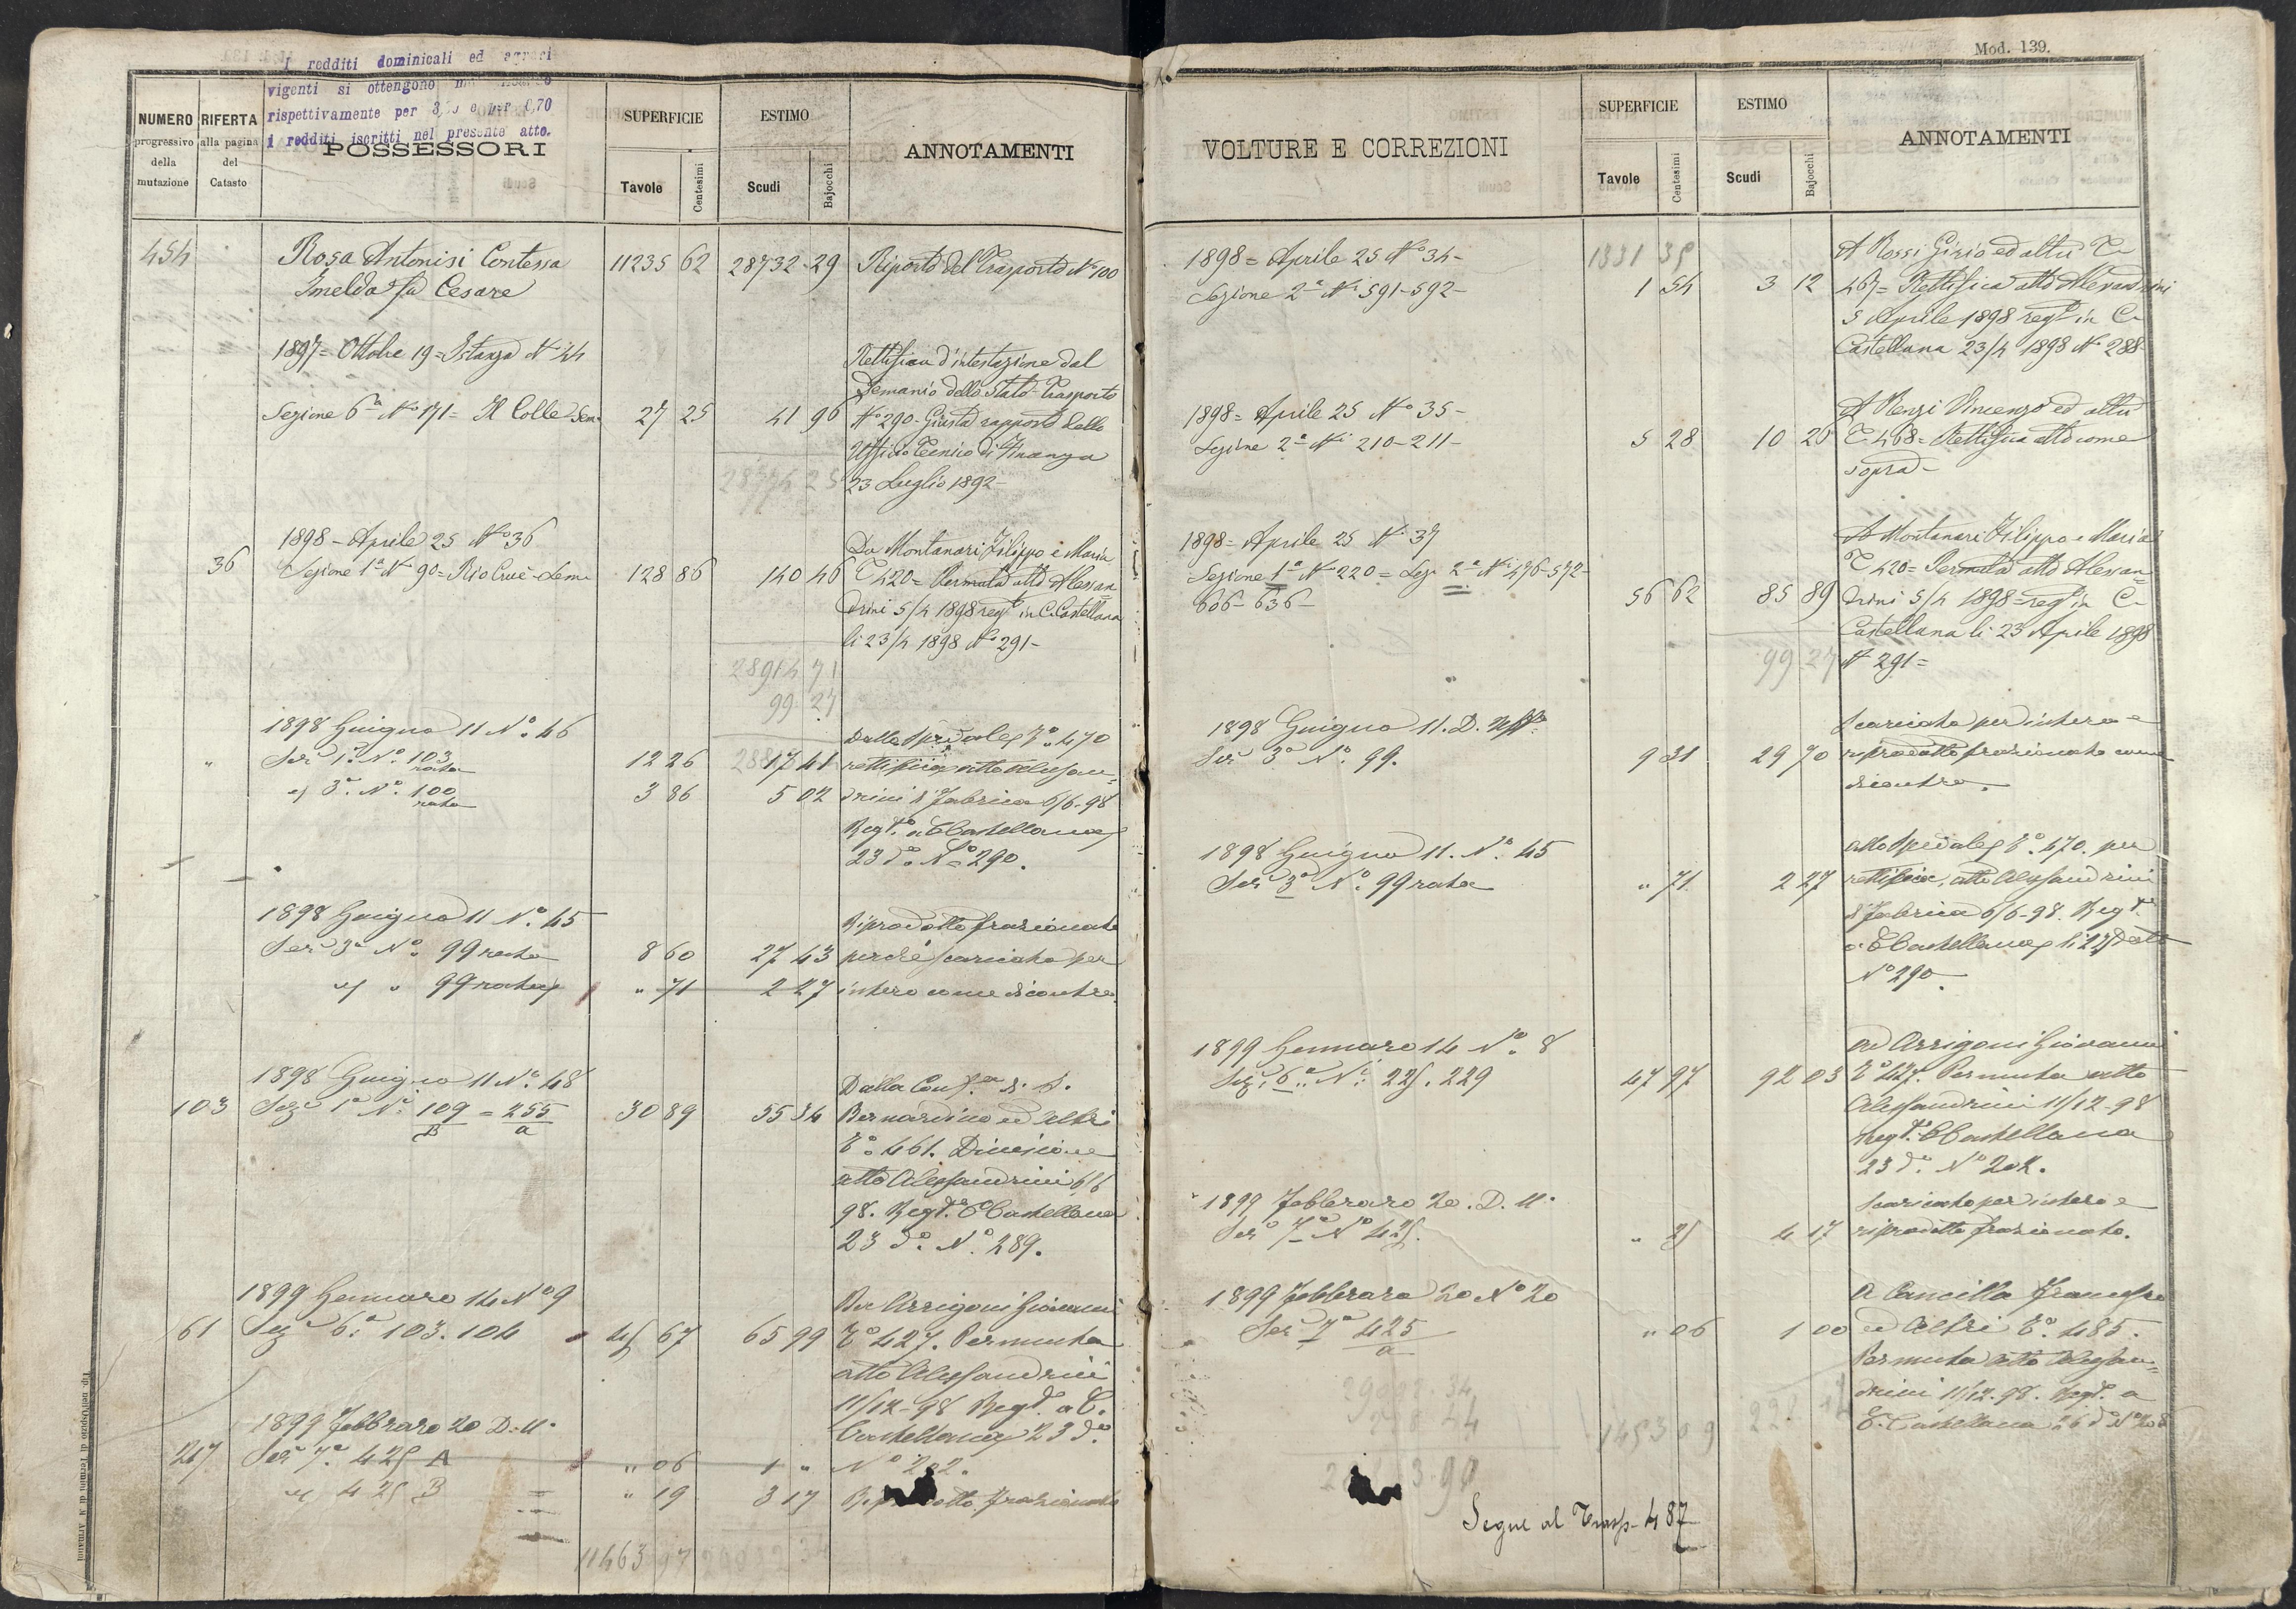 I redditi dominicali ed agrari
vigenti si ottengono
rispettivamente per e per 0,70
i redditi iscritti nel presente atto.
NUMERO
progressivo
della
mutazione
RIFERTA
alla pagina
del
Catasto
POSSESSORI
SUPERFICIE
Tavole
Centesimi
ESTIMO
Scudi
Bajocchi
ANNOTAMENTI
454 Rosa Antonisi Contessa 11235 62 28732 29 Riporto del Trasporto N° 100
Imelda fu Cesare
1897 = Ottobre 19 = Istanza N° 44
Rettifica d'intestazione dal
Demanio dello Stato - Trasporto
Sezione 6ª N° 171 = Il Colle Sem 27 25 41 96 N° 290 - Giusta rapporto dello
Ufficio Tecnico di Finanza
28774 25 23 Luglio 1892 -
1898 - Aprile 25 N° 36
Da Montanari Filippo e Maria
36 Sezione 1ª N° 90 = Rio Cruè - Sem 128 86 140 46 T 420 = Permuta atto Alessan=
drini 5/4 1898 regto in C. Castellana
li 23/4 1898 N° 291 -
28914 71
99 27
1898 Guigno 11 N° 46
Dallo Spedale T° 470
" Sez 1ª N° 103 rata 12 26 17 41 rettifica atto Alessan=
" 3ª N° 100 rata 3 86 5 02 drini d' Fabrica 6/6-98
Regto a CCastellana
23 do N° 290.
1898 Guigno 11 N° 45
Riprodotto frazionato
Sez 3ª N° 99 rata 8 60 27 43 perchè scaricato per
" " 99 rata " 71 2 27 intero come dicontro.
1898 Guigno 11 N° 48
103 Sez 1ª N° 109/B = 255/a 30 89 55 34 Bernardino ed altri
T° 461. Divisione
atto Alessandrini 6/6
98. Regto CCastellana
23 do N° 289.
1899 Gennaro 14 N° 9
Da Arrigoni Giovanni
61 Sez 6ª 103. 104 45 67 65 99 T° 427. Permuta
atto Alessandrini
11/12-98 Regto a C.
1899 Febbraro 20 D. U.
Castellana 23 do
247 Sez 7ª 425 A " 06 1 " N° 202.
" 425 B " 19 3 17 frazionato
11463 97 29092 34
Mod. 139.
VOLTURE E CORREZIONI
SUPERFICIE
Tavole
Centesimi
ESTIMO
Scudi
Bajocchi
ANNOTAMENTI
1898 = Aprile 25 N° 34 -
1331 35
A Rossi Girio ed altri T
Sezione 2ª Ni 591-592 - 1 54 3 12 467 = Rettifica atto Alessandrini
5 Aprile 1898 regto in C
Castellana 23/4 1898 N° 288
1898 = Aprile 25 N° 35 -
A Renzi Vincenzo ed altri
Sezione 2ª Ni 210-211 - 5 28 10 20 T 468 = Rettifica atto come
sopra -
1898 = Aprile 25 N° 37
A Montanari Filippo e Maria
Sezione 1ª N° 220 = Sez 2ª Ni 476-572 - T 420 = Permuta atto Alessan=
606 - 636 - 56 62 85 89 drini 5/4 1898 = regto in C
Castellana li 23 Aprile 1898
99 27 N° 291 =
1898 Guigno 11. D. Uff°
Scaricato per intero e
Sez 3ª N° 99. 9 31 29 70 riprodotto frazionato come
dicontro.
1898 Guigno 11. N° 45
allo Spedale T° 470. per
Sez 3ª N° 99 rata " 71 2 27 rettifica, atto Alessandrini
d' Fabrica 6/6-98. Regto
a CCastellana li 23 detto
N° 290.
1899 Gennaro 14 N° 8
ad Arrigoni Giovanni
Sez. 6ª Ni 225. 229 47 97 92 03 T° 427. Permuta atto
Alessandrini 11/12-98
Regto CCastellana
23 do N° 202.
1899 Febbraro 20. D. U.
Scaricato per intero e
Sez 7ª N° 425. " 25 4 17 riprodotto frazionato.
1899 Febbraro 20 N° 20
A Cancilla Francesco
Sez 7ª 425/a " 06 1 00 ed Altri T° 485.
Permuta atto Alessan=
29092.34
drini 11/12-98. Regto a
228 44
1453 09
C. Castellana 26 do N° 208
Segue al Trasp - 487
Tip. nell'Ospizio di Termini di M. Armanni